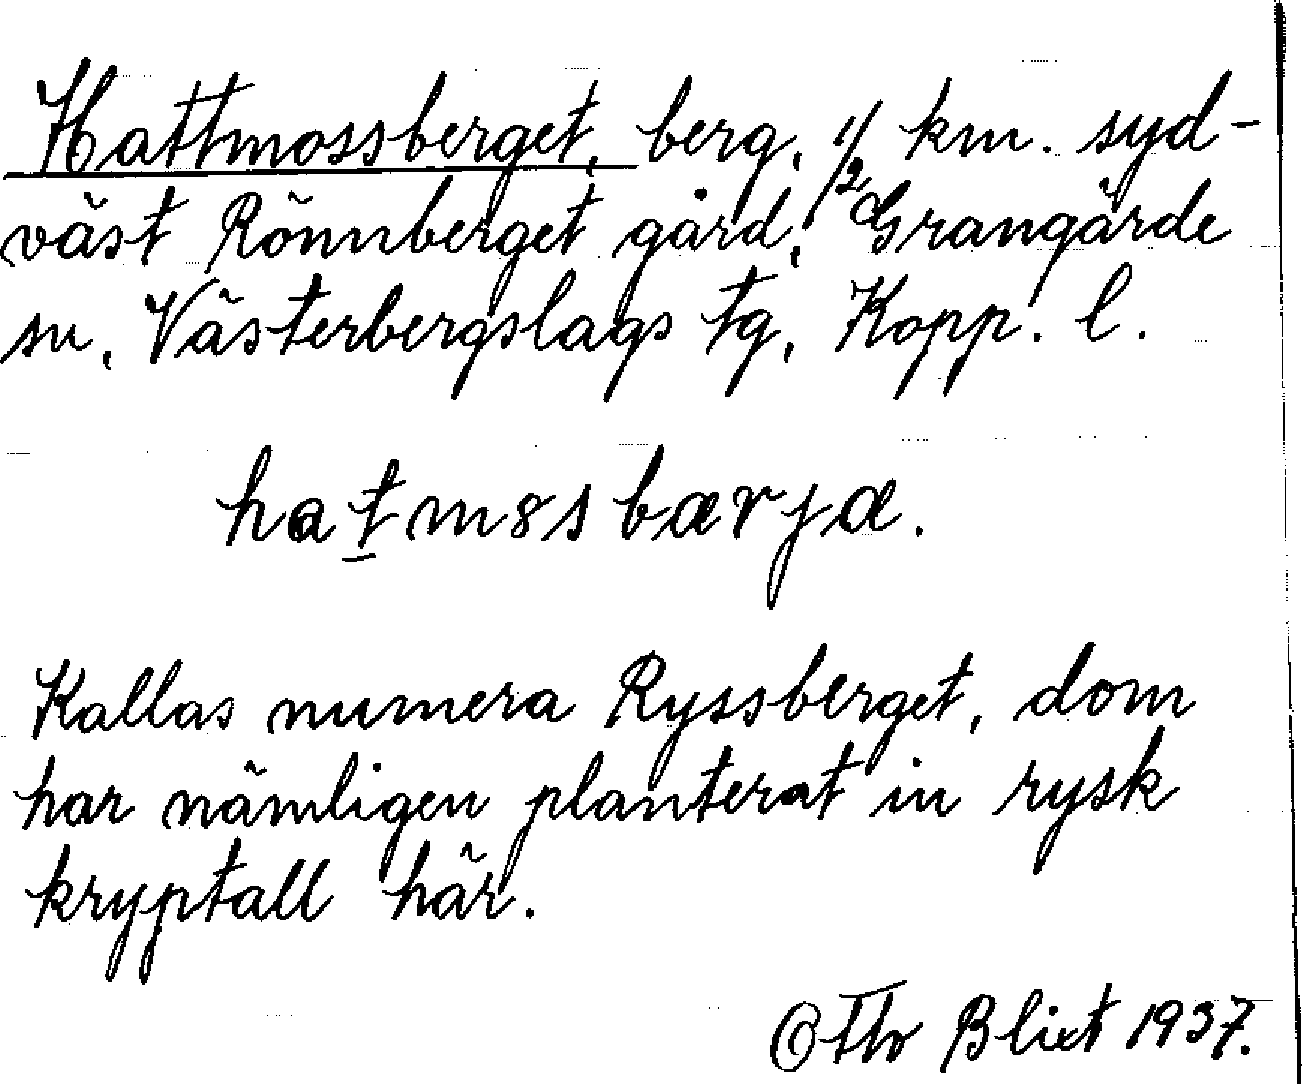 Hattmossberget, berg, 1/2 km. syd-
väst Rönnberget gård, Grangärde
sn, Västerbergslags tg, Kopp. l.
hatmosbærjæ.
Kallas numera Ryssberget, dom
har nämligen planterat in rysk
kryptall här.
Th Blixt 1937.